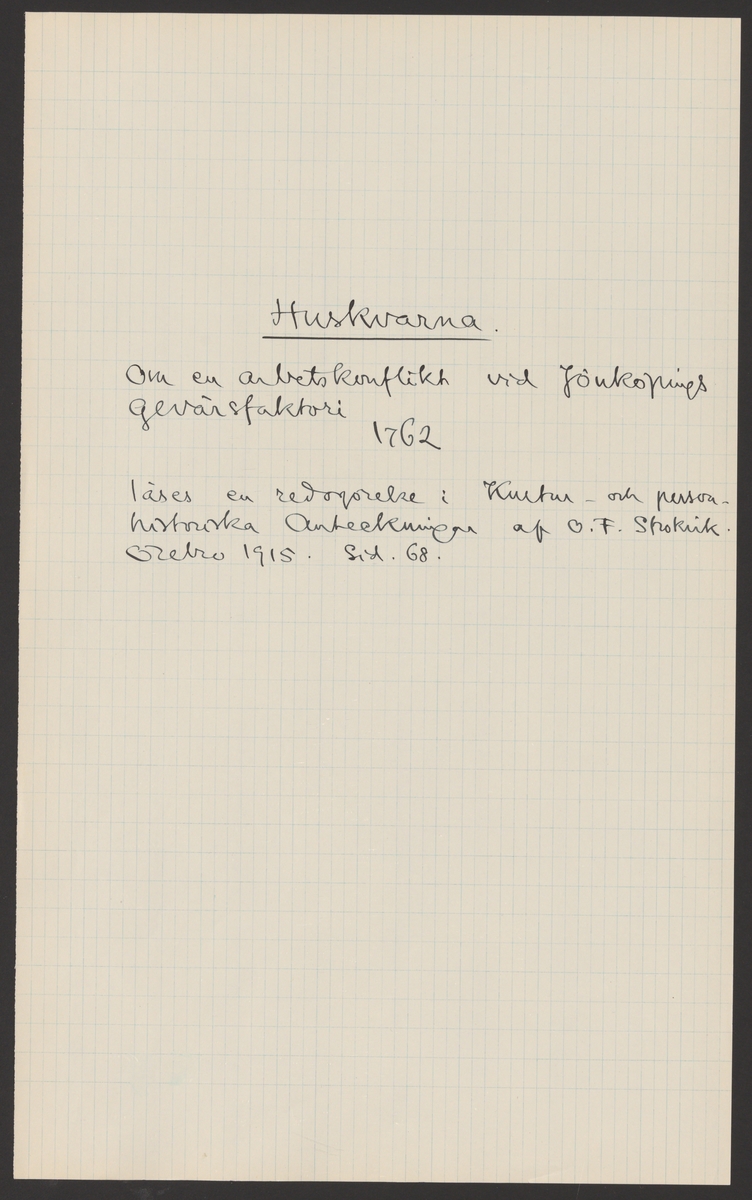 Huskvarna.
Om en arbetskonflikt vid Jönköpings
gevärsfaktori
1762
läses en redogörelse i Kultur- och person-
historiska Anteckningar af O. F. Strokirk.
Örebro 1915. Sid. 68.